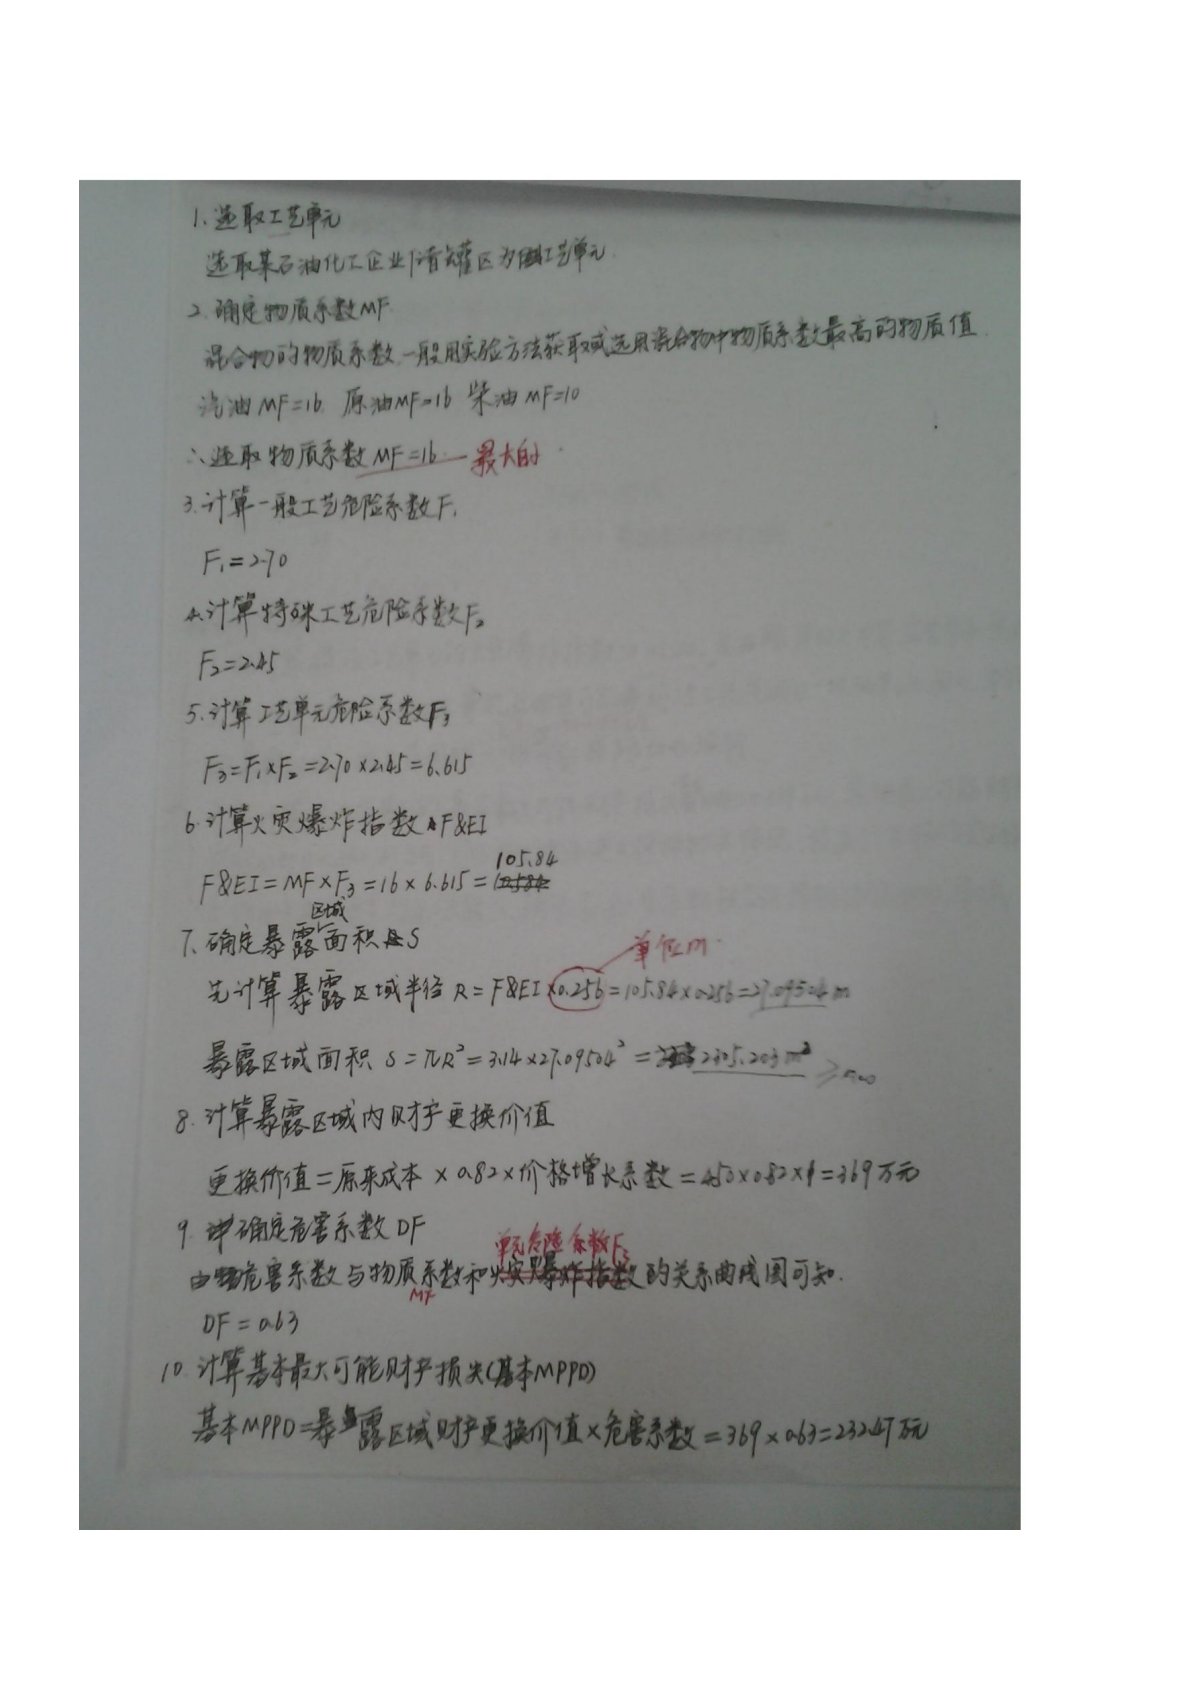 1、选取工艺单元
选取某石油化工企业贮罐区为工艺单元.
2.确定物质系数MF.
混合物的物质系数,一般用实验方法获取或选用混合物中物质系数最高的物质值.
汽油MF=16, 原油MF=16 柴油MF=10
∴选取物质系数MF=16. 最大的
3.计算一般工艺危险系数F₁
F₁=2.70
4.计算特殊工艺危险系数F₂
F₂=2.45
5.计算工艺单元危险系数F₃
F₃=F₁×F₂=2.70×2.45=6.615
6.计算火灾爆炸指数F&EI
105.84
F&EI=MF×F₃=16×6.615=
区域
7.确定暴露面积S
单位m.
先计算暴露区域半径R=F&EI×0.256=105.84×0.256=27.09504m
暴露区域面积 S=πR²=3.14×27.09504²=2305.203m²
8.计算暴露区域内财产更换价值
更换价值=原来成本×0.82×价格增长系数=450×0.82×1=369万元
9.确定危害系数DF
单元危险系数F₃
由危害系数与物质系数和火灾爆炸指数的关系曲线图可知.
MF
DF=0.63
10.计算基本最大可能财产损失(基本MPPD)
基本MPPD=暴露区域财产更换价值×危害系数=369×0.63=232.47万元